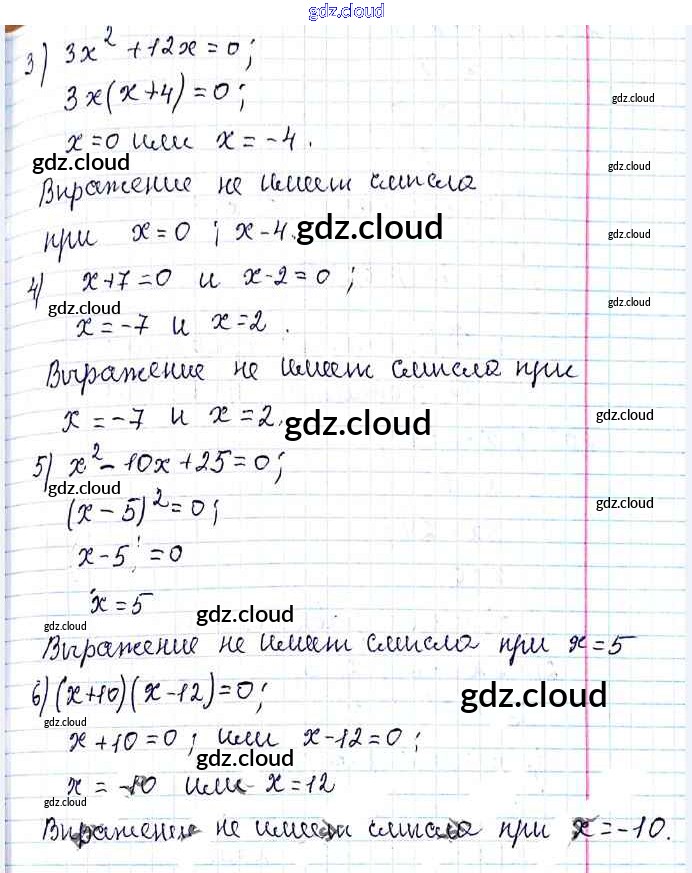 gdz.cloud
3) 3x² + 12x = 0;
gdz.cloud
3x(x+4) = 0;
x = 0 или x = -4.
gdz.cloud
gdz.cloud
Выражение не имеет смысла
при x = 0 ; x - 4.
gdz.cloud
gdz.cloud
4) x+7 = 0 и x-2 = 0 ;
gdz.cloud
gdz.cloud
x = -7 и x = 2 .
Выражение не имеет смысла при
x = -7 и x = 2.
gdz.cloud
gdz.cloud
5) x² - 10x + 25 = 0;
gdz.cloud
gdz.cloud
(x - 5)² = 0;
x - 5 = 0
x = 5
gdz.cloud
gdz.cloud
Выражение не имеет смысла при x = 5
6) (x+10)(x-12) = 0;
gdz.cloud
gdz.cloud
x + 10 = 0 ; или x - 12 = 0 ;
gdz.cloud
x = -10 или x = 12
gdz.cloud
Выражение не имеет смысла при x = -10.